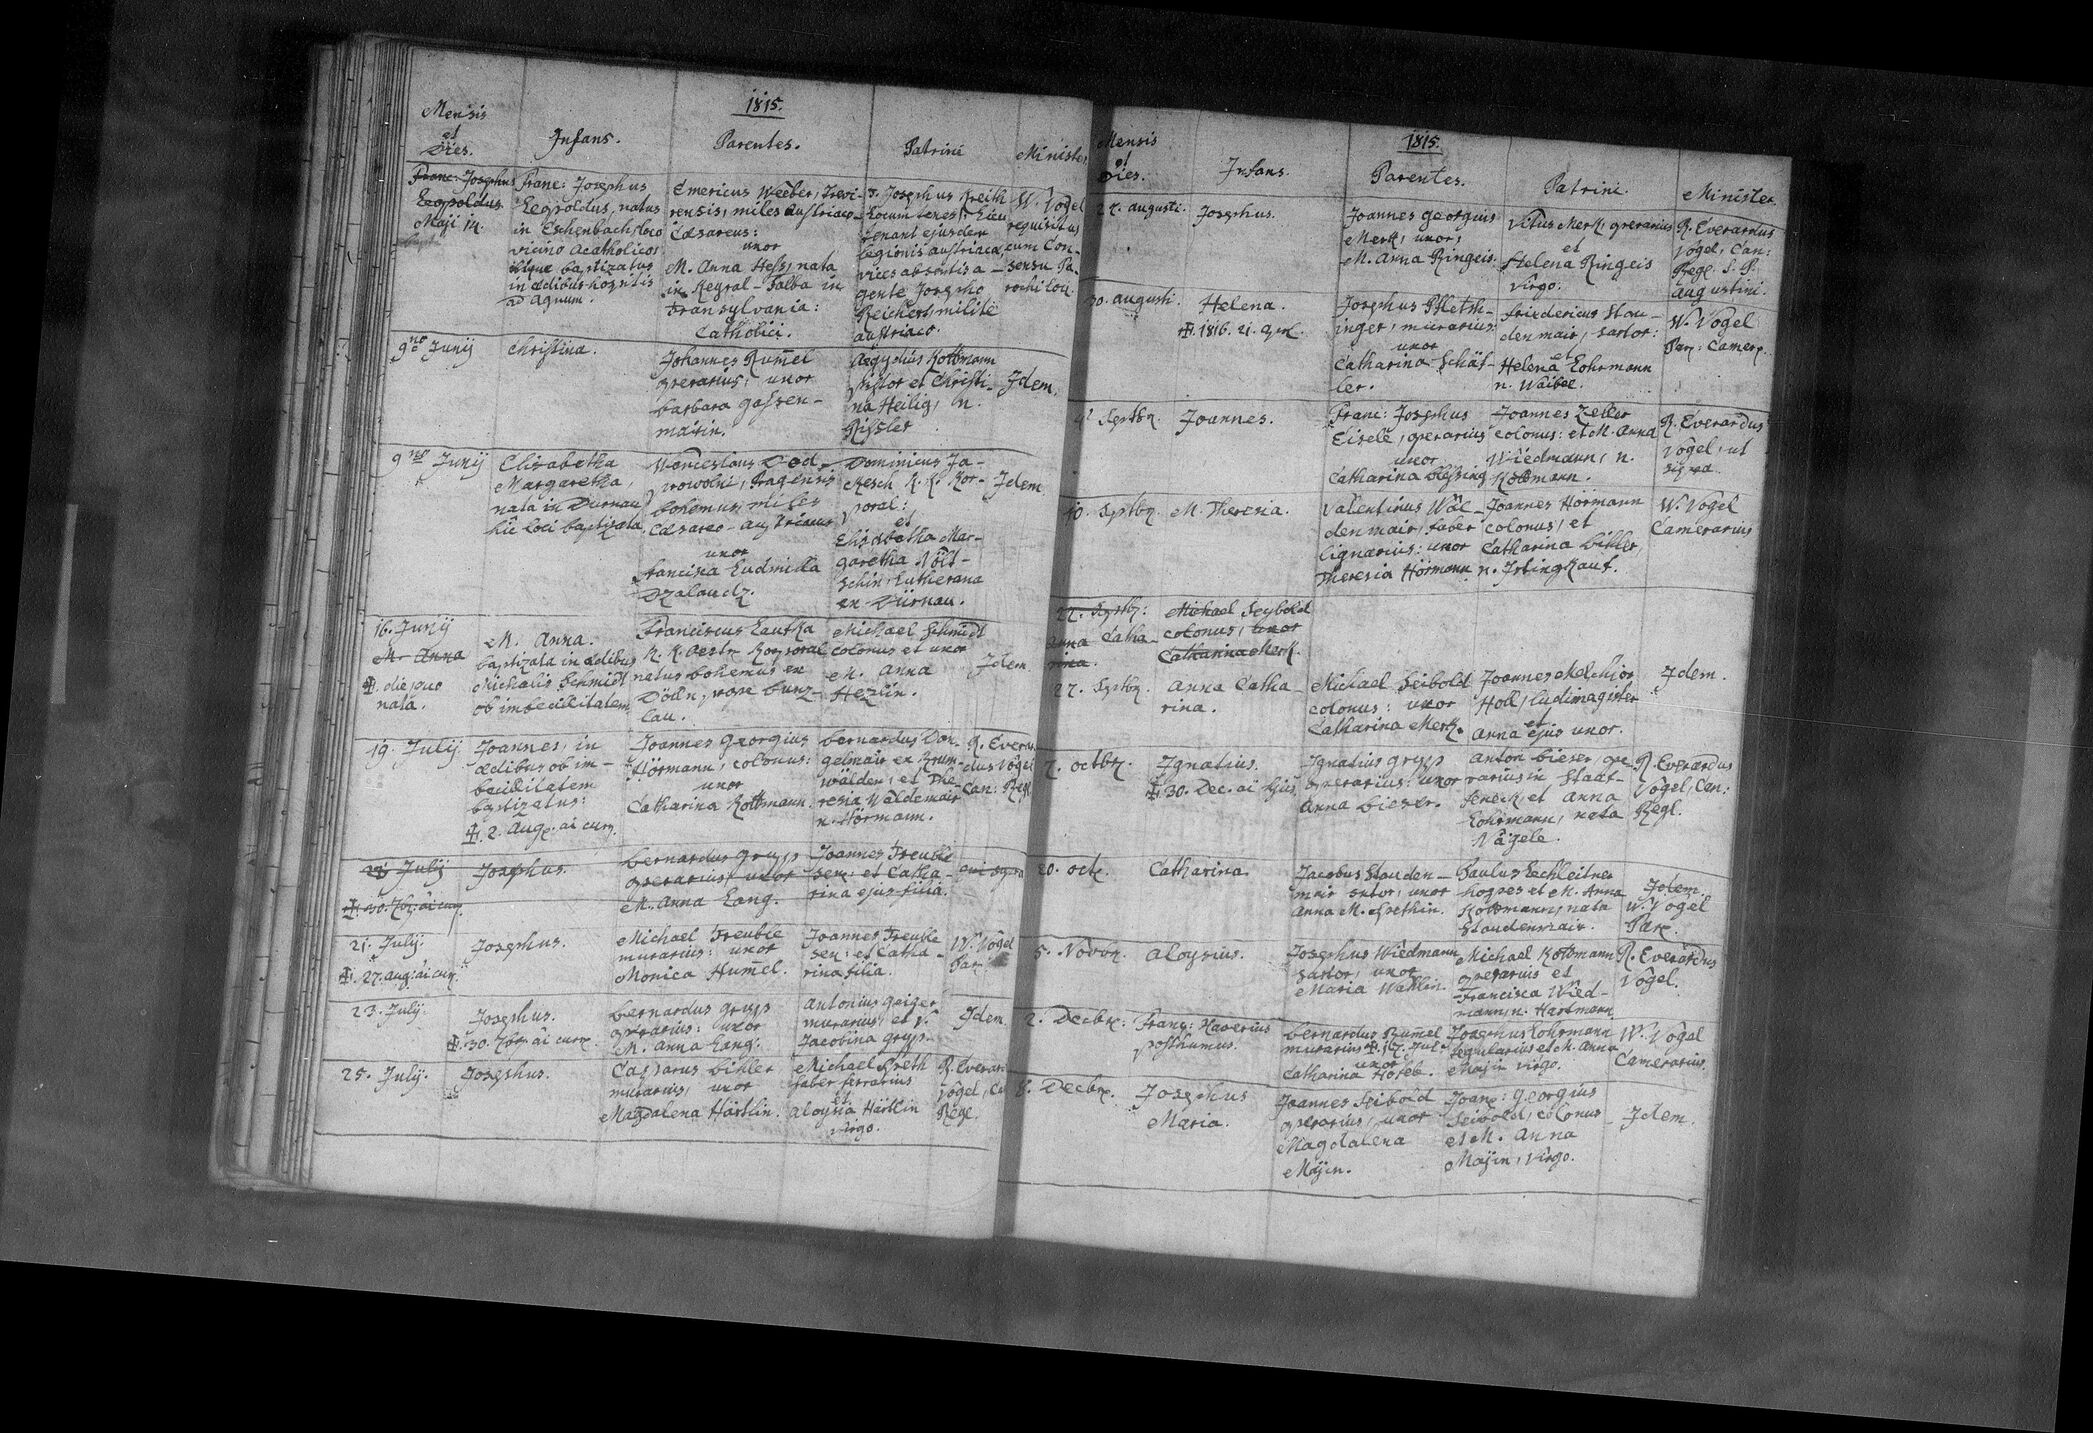 1815.
Mensis
et
Dies.
Infans.
Parentes.
Patrini
Minister
Franc: Josephus
Leopoldus
Maji 14.
Franc: Josephus
Leopoldus, natus
in Eschenbach, loco
vicino acatholico
hicque baptizatus
in ædibus hospitis
ad agnum.
Emericus Weeber, Trevi-
rensis, miles austriaco-
Cæsareus:
uxor
M. Anna Hess, nata
in Regral-Falba in
Transylvania:
Catholici.
Josephus Kreith
Locum tenens: Lieu
tenant ejusdem
legionis austriacæ,
vices absentis a-
gente Josepho
Reichert, milite
austriaco.
W. Vogel
requisitus
cum Con-
sensu Pa-
rochi loci.
9no Junij
Christina.
Johannes Rumel
operarius: uxor
barbara gassen-
mairin.
Aegydius Kottmann
pistor et Christi-
na Heilig, n.
Rissler
Idem.
9no Junij
Elisabetha
Margaretha,
nata in Durnau,
hic loci baptizata
Wenceslaus Dod-
rowolni, Pragensis
bohemus, miles
Cæsareo-austriacus
uxor
Francisca Ludmilla
Dzalaudz.
Dominicus Ja-
Resch K. K. Kor-
poral:
et
Elisabetha Mar-
garetha
schin, Lutherana
ex Dürnau.
Idem
16. Junij
M. Anna
✠. die quo
nata.
M. Anna.
baptizata in ædibus
Michaelis Schmidt
ob imbecillitatem
Franciscus Lautka
K. K. Oestr. Korporal
natus bohemus ex
Dödn, prope bunz-
lau.
Michael Schmidt
colonus et uxor
M. Anna
Hezlin.
Idem
19. July.
Joannes, in
ædibus ob im-
becillitatem
baptizatus:
✠. 2. Aug. ai curr.
Joannes Georgius
Hörmann, colonus:
uxor
Catharina Kottmann.
bernardus Don-
gelmair ex Krum-
wälden, et The-
resia Waldemair
n. Hörmann.
R. Everar-
dus Vogel
Can: Regl.
July
✠. 30. 7br. ai curr.
Josephus.
bernardus gryss
operarius, uxor
M. Anna Lang.
Joannes Treuble
sen: et Catha-
rina ejus filia.
21. July.
✠. 27. aug: ai curr.
Josephus.
Michael Treuble
murarius: uxor
Monica Humel.
Joannes Treuble
sen: et Catha-
rina filia.
W. Vogel
Par.
23. July.
Josephus.
✠. 30. 7br. ai curr.
bernardus gryss
operarius: uxor
M. Anna Lang.
Antonius geiger
murarius, et v.
Jacobina gryss.
Idem
25. July.
Josephus.
Casparus bihler
murarius, uxor
Magdalena Härtlin.
Michael Greth
faber ferrarius
et
aloysia Härtlin
virgo.
R. Everar
Vogel, Ca
Rege.
1815.
Mensis
et
Dies.
Infans.
Parentes.
Patrini.
Minister
augusti.
Josephus.
Joannes georgius
Merk, uxor,
M. Anna Ringeis.
Vitus Merk, operarius
et
Helena Ringeis
virgo.
R. Everardus
Vogel, Can:
Regl. S. P.
augustini.
30. augusti.
Helena.
✠. 1816. 21. Apl.
Josephus Pfletsch-
inger, murarius
uxor
Catharina Schäf-
ler.
Friedericus Stau-
denmair, sartor:
et
Helena Lohrmann
n. Waibel.
W. Vogel
Par: Camer.
Septbr.
Joannes.
Franc: Josephus
Eisele, operarius
uxor
Catharina blessing
Joannes Zeller
colonus: et M. Anna
Wiedmann, n.
Kottmann.
R. Everardus
Vogel, ut
supra.
10. Septbr.
M. Theresia.
Valentinus Wal-
denmair, faber
lignarius: uxor
Theresia Hörmann
Joannes Hörmann
colonus, et
Catharina bihler,
n. Irtingkauf.
W. Vogel
Camerarius
22. Septbr:
Anna Catha-
rina.
Michael Seybold
colonus, uxor
Catharina Merk.
27. Septbr.
Anna Catha-
rina.
Michael Seibold
colonus: uxor
Catharina Merk.
Joannes Melchior
Holl, ludimagister
et
Anna ejus uxor.
Idem.
7. octbr.
Ignatius.
✠. 30. Dec. ai ejus.
Ignatius gryss
operarius: uxor
Anna bieser.
Anton bieser, ope-
rarius in Stauf-
feneck, et Anna
Lohrmann, nata
Nägele.
R. Everardus
Vogel, Can:
Regl.
20. octr.
Catharina.
Jacobus Stauden-
mair sutor, uxor
Anna M. Grethin.
Paulus Lechleitner
hospes et M. Anna
Kottmann, nata
Staudenmair.
Idem.
W. Vogel
Par.
5. Novbr.
Aloysius.
Josephus Wiedmann
sartor, uxor
Maria Wahlin.
Michael Kottmann
operarius et
Francisca Wied-
mann, n. Hartmann
R. Everardus
Vogel.
2. Decbr:
Franz: Xaverius
posthumus.
bernardus Rumel
murarius ✠. 17. Jul.
uxor
Catharina Hofele.
Josephus Lohrmann
tegularius et M. Anna
Majin virgo.
W. Vogel
Camerarius.
8. Decbr.
Josephus
Maria.
Joannes Seibold
operarius, uxor
Magdalena
Majin.
Joan: Georgius
Seibold, colonus
et M. Anna
Majin, virgo.
Idem.